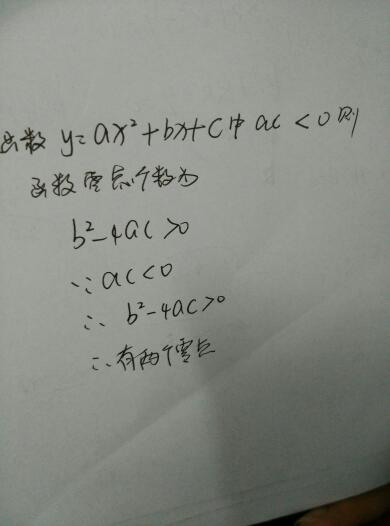 函数 y=ax²+bx+c中 ac<0则
函数零点个数为
b²-4ac>0
∵ac<0
∴ b²-4ac>0
∴有两个零点